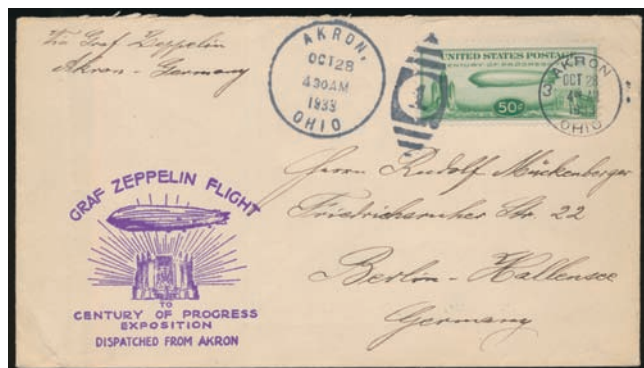 Via Graf Zeppelin
Akron - Germany
AKRON,
OCT 28
4 30 AM
1933
OHIO
UNITED STATES POSTAGE
CENTURY OF PROGRESS
50¢
AKRON
OCT 28
OHIO
3
Herrn Rudolf Mückenberger
Friedrichsruher Str. 22
Berlin - Hallensee
Germany
GRAF ZEPPELIN FLIGHT
TO
CENTURY OF PROGRESS
EXPOSITION
DISPATCHED FROM AKRON